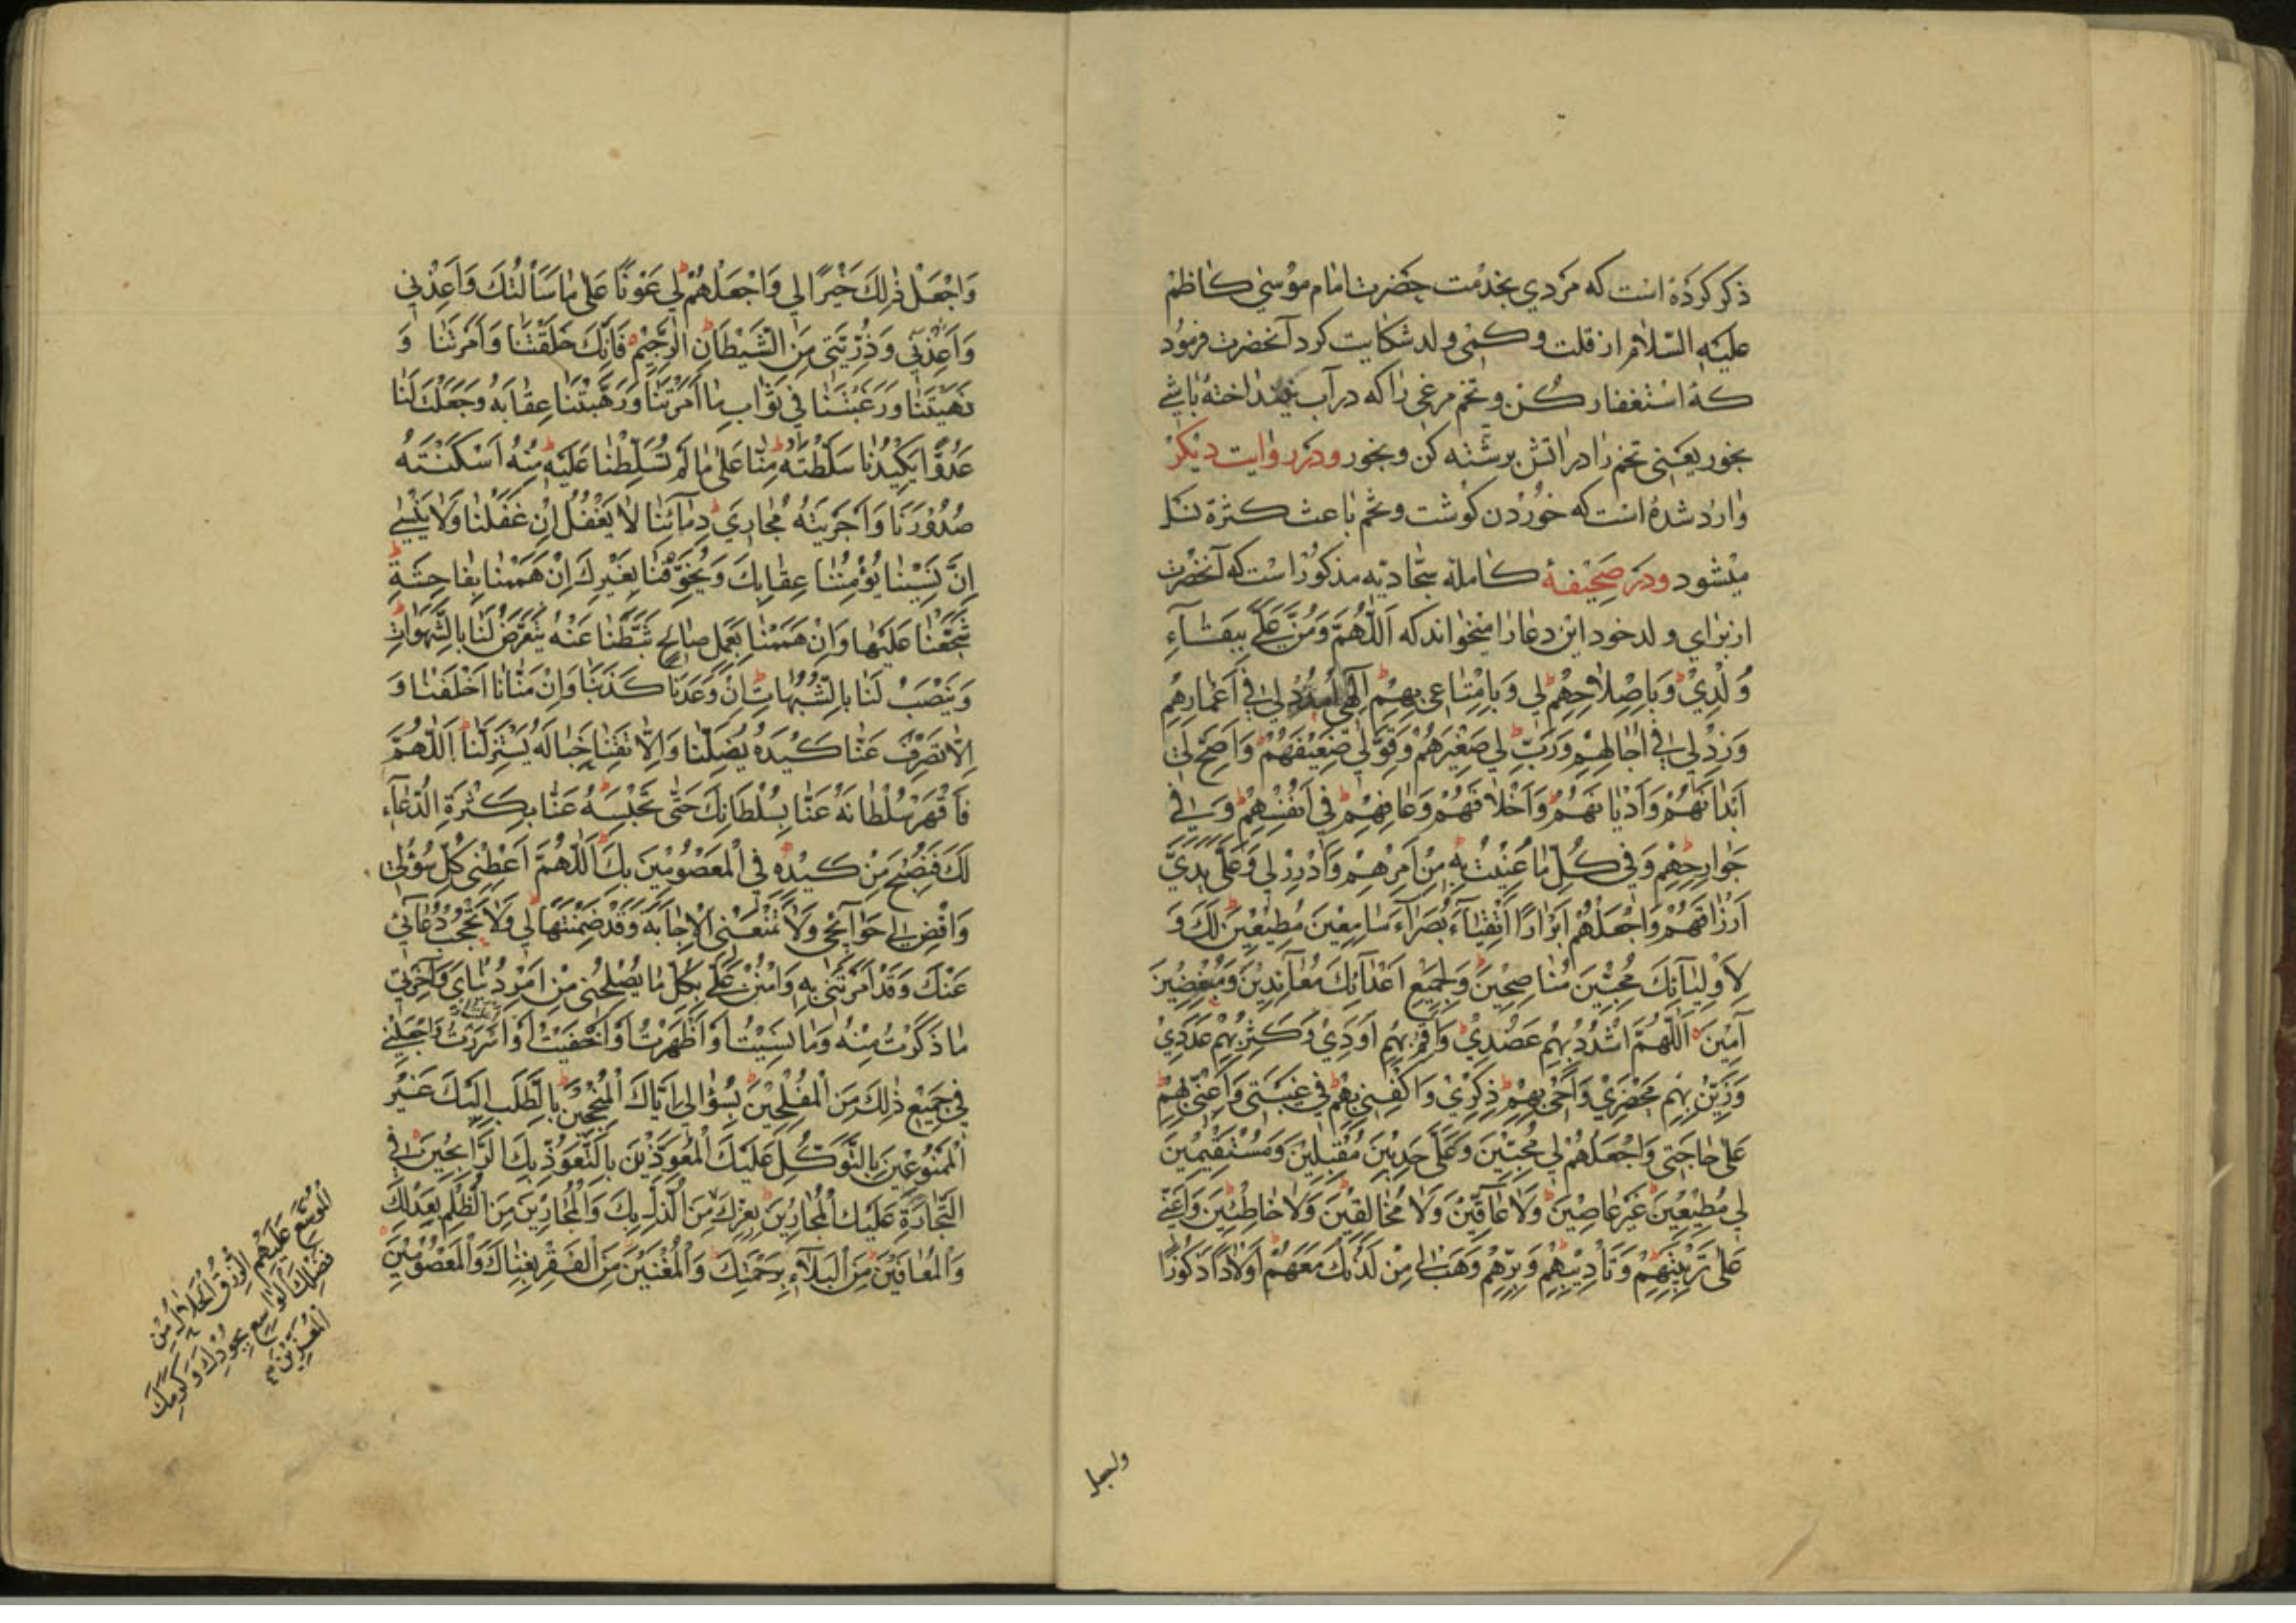 ذكر كرده است كه مردي بخدمت حضرت امام موسي كاظم
عليه السلام از قلت و كمي ولد شكايت كرد آنحضرت فرمود
كه استغفار كن و تخم مرغي را كه در آب باشي
بخور يعني تخم را در اتش برشته كن و بخور ودر روايت ديكر
وارد شده است كه خوردن كوشت و تخم باعث كثرة نسل
ميشود ودر صحيفهٔ كامله سجاديه مذكور است كه آنحضرت
از براي ولد خود اين دعا را ميخواند كه اَللّهُمَّ وَمُنَّ عَلَيَّ بِبَقاءِ
وُلْدِيْ وَبِاِصْلاحِهِمْ لي وَبِاِمْتاعي بِهِمْ اِلهي اُمْدُدْ لي في اَعْمارِهِمْ
وَزِدْ لي في اجالِهِمْ وَرَبِّ لي صَغيرَهُمْ وَقَوِّ لي ضَعيفَهُمْ وَاَصِحَّ لي
اَبْدانَهُمْ وَاَدْيانَهُمْ وَاَخْلاقَهُمْ وَعافِهِمْ في اَنْفُسِهِمْ وَفي
جَوارِحِهِمْ وَفي كُلِّ ما عُنيتُ بِهِ مِنْ اَمْرِهِمْ وَاَدْرِرْ لي وَعَلي يَدَيَّ
اَرْزاقَهُمْ وَاجْعَلْهُمْ اَبْرارًا اَتْقِياءَ بُصَراءَ سامِعينَ مُطيعينَ لَكَ وَ
لِاَوْلِيائِكَ مُحِبّينَ مُناصِحينَ وَلِجَميعِ اَعْدائِكَ مُعانِدينَ وَمُبْغِضينَ
آمينَ اَللّهُمَّ اشْدُدْ بِهِمْ عَضُدي وَاَقِمْ بِهِمْ اَوَدي وَكَثِّرْ بِهِمْ عَدَدي
وَزَيِّنْ بِهِمْ مَحْضَري وَاَحْيِ بِهِمْ ذِكْري وَاكْفِني بِهِمْ في غَيْبَتي وَاَعِنّي بِهِمْ
عَلي حاجَتي وَاجْعَلْهُمْ لي مُحِبّينَ وَعَلَيَّ حَدِبينَ مُقْبِلينَ وَمُسْتَقيمينَ
لي مُطيعينَ غَيْرَ عاصينَ وَلا عاقّينَ وَلا مُخالِفينَ وَلا خاطِئينَ وَاَعِنّي
عَلي تَرْبِيَتِهِمْ وَتَأْديبِهِمْ وَبِرِّهِمْ وَهَبْ لي مِنْ لَدُنْكَ مَعَهُمْ اَوْلادًا ذُكُورًا
واجعل
وَاجْعَلْ ذلِكَ خَيْرًا لي وَاجْعَلْهُمْ لي عَوْنًا عَلي ما سَاَلْتُكَ وَاَعِذْني
وَاَعِذْني وَذُرِّيَّتي مِنَ الشَّيْطانِ الرَّجيمِ فَاِنَّكَ خَلَقْتَنا وَاَمَرْتَنا وَ
نَهَيْتَنا وَرَغَّبْتَنا في ثَوابِ ما اَمَرْتَنا وَرَهَّبْتَنا عِقابَهُ وَجَعَلْتَ لَنا
عَدُوًّا يَكيدُنا سَلَّطْتَهُ مِنّا عَلي ما لَمْ تُسَلِّطْنا عَلَيْهِ مِنْهُ اَسْكَنْتَهُ
صُدُورَنا وَاَجْرَيْتَهُ مَجارِيَ دِمآئِنا لا يَغْفُلُ اِنْ غَفَلْنا وَلا يَنْسي
اِنْ نَسينا يُؤْمِنُنا عِقابَكَ وَيُخَوِّفُنا بِغَيْرِكَ اِنْ هَمَمْنا بِفاحِشَةٍ
شَجَّعَنا عَلَيْها وَاِنْ هَمَمْنا بِعَمَلٍ صالِحٍ ثَبَّطَنا عَنْهُ يَتَعَرَّضُ لَنا بِالشَّهَواتِ
وَيَنْصِبُ لَنا بِالشُّبُهاتِ اِنْ وَعَدَنا كَذَبَنا وَاِنْ مَنّانا اَخْلَفَنا وَ
اِلّا تَصْرِفْ عَنّا كَيْدَهُ يُضِلَّنا وَاِلّا تَقِنا خَبالَهُ يَسْتَزِلَّنا اَللّهُمَّ
فَاقْهَرْ سُلْطانَهُ عَنّا بِسُلْطانِكَ حَتّي تَحْبِسَهُ عَنّا بِكَثْرَةِ الدُّعآءِ
لَكَ فَنُصْبِحَ مِنْ كَيْدِهِ في الْمَعْصُومينَ بِكَ اَللّهُمَّ اَعْطِني كُلَّ سُؤْلي
وَاقْضِ لي حَوآئِجي وَلا تَمْنَعْنِي الْاِجابَةَ وَقَدْ ضَمِنْتَها لي وَلا تَحْجُبْ دُعآئي
عَنْكَ وَقَدْ اَمَرْتَني بِهِ وَامْنُنْ عَلَيَّ بِكُلِّ ما يُصْلِحُني مِنْ اَمْرِ دُنْيايَ وَآخِرَتي
ما ذَكَرْتُ مِنْهُ وَما نَسيتُ اَوْ اَظْهَرْتُ اَوْ اَخْفَيْتُ اَوْ اَسْرَرْتُ وَاجْعَلْني
في جَميعِ ذلِكَ مِنَ الْمُفْلِحينَ بِسُؤالي اِيّاكَ الْمُنْجِحينَ بِالطَّلَبِ اِلَيْكَ غَيْرِ
الْمَمْنُوعينَ بِالتَّوَكُّلِ عَلَيْكَ الْمُعَوَّذينَ بِالتَّعَوُّذِ بِكَ الرّابِحينَ في
التِّجارَةِ عَلَيْكَ الْمُجارينَ بِعِزِّكَ مِنَ الذُّلِّ بِكَ وَالْمُجارينَ مِنَ الظُّلْمِ بِعَدْلِكَ
وَالْمُعافَيْنَ مِنَ الْبَلآءِ بِرَحْمَتِكَ وَالْمُغْنَيْنَ مِنَ الْفَقْرِ بِغِناكَ وَالْمَعْصُومينَ
الْمُوَسَّعِ عَلَيْهِمُ الرِّزْقُ الْحَلالُ مِنْ
فَضْلِكَ الْواسِعِ بِجُودِكَ وَكَرَمِكَ